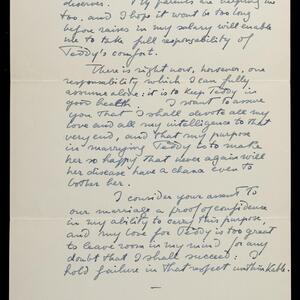 deserves. My parents are helping me
too, and I hope it won't be too long
before raises in my salary will enable
me to take full responsibility of
Teddy's comfort.
There is right now, however, one
responsibility which I can fully
assume alone: it is to keep Teddy in
good health. I want to assure
you that I shall devote all my
love and all my intelligence to that
very end, and that my purpose
in marrying Teddy is to make
her so happy that never again will
her disease have a chance even to
bother her.
I consider your assent to
our marriage a proof of confidence
in my ability to carry this purpose,
and my love for Teddy is too great
to leave room in my mind for any
doubt that I shall succeed: I
hold failure in that respect unthinkable.